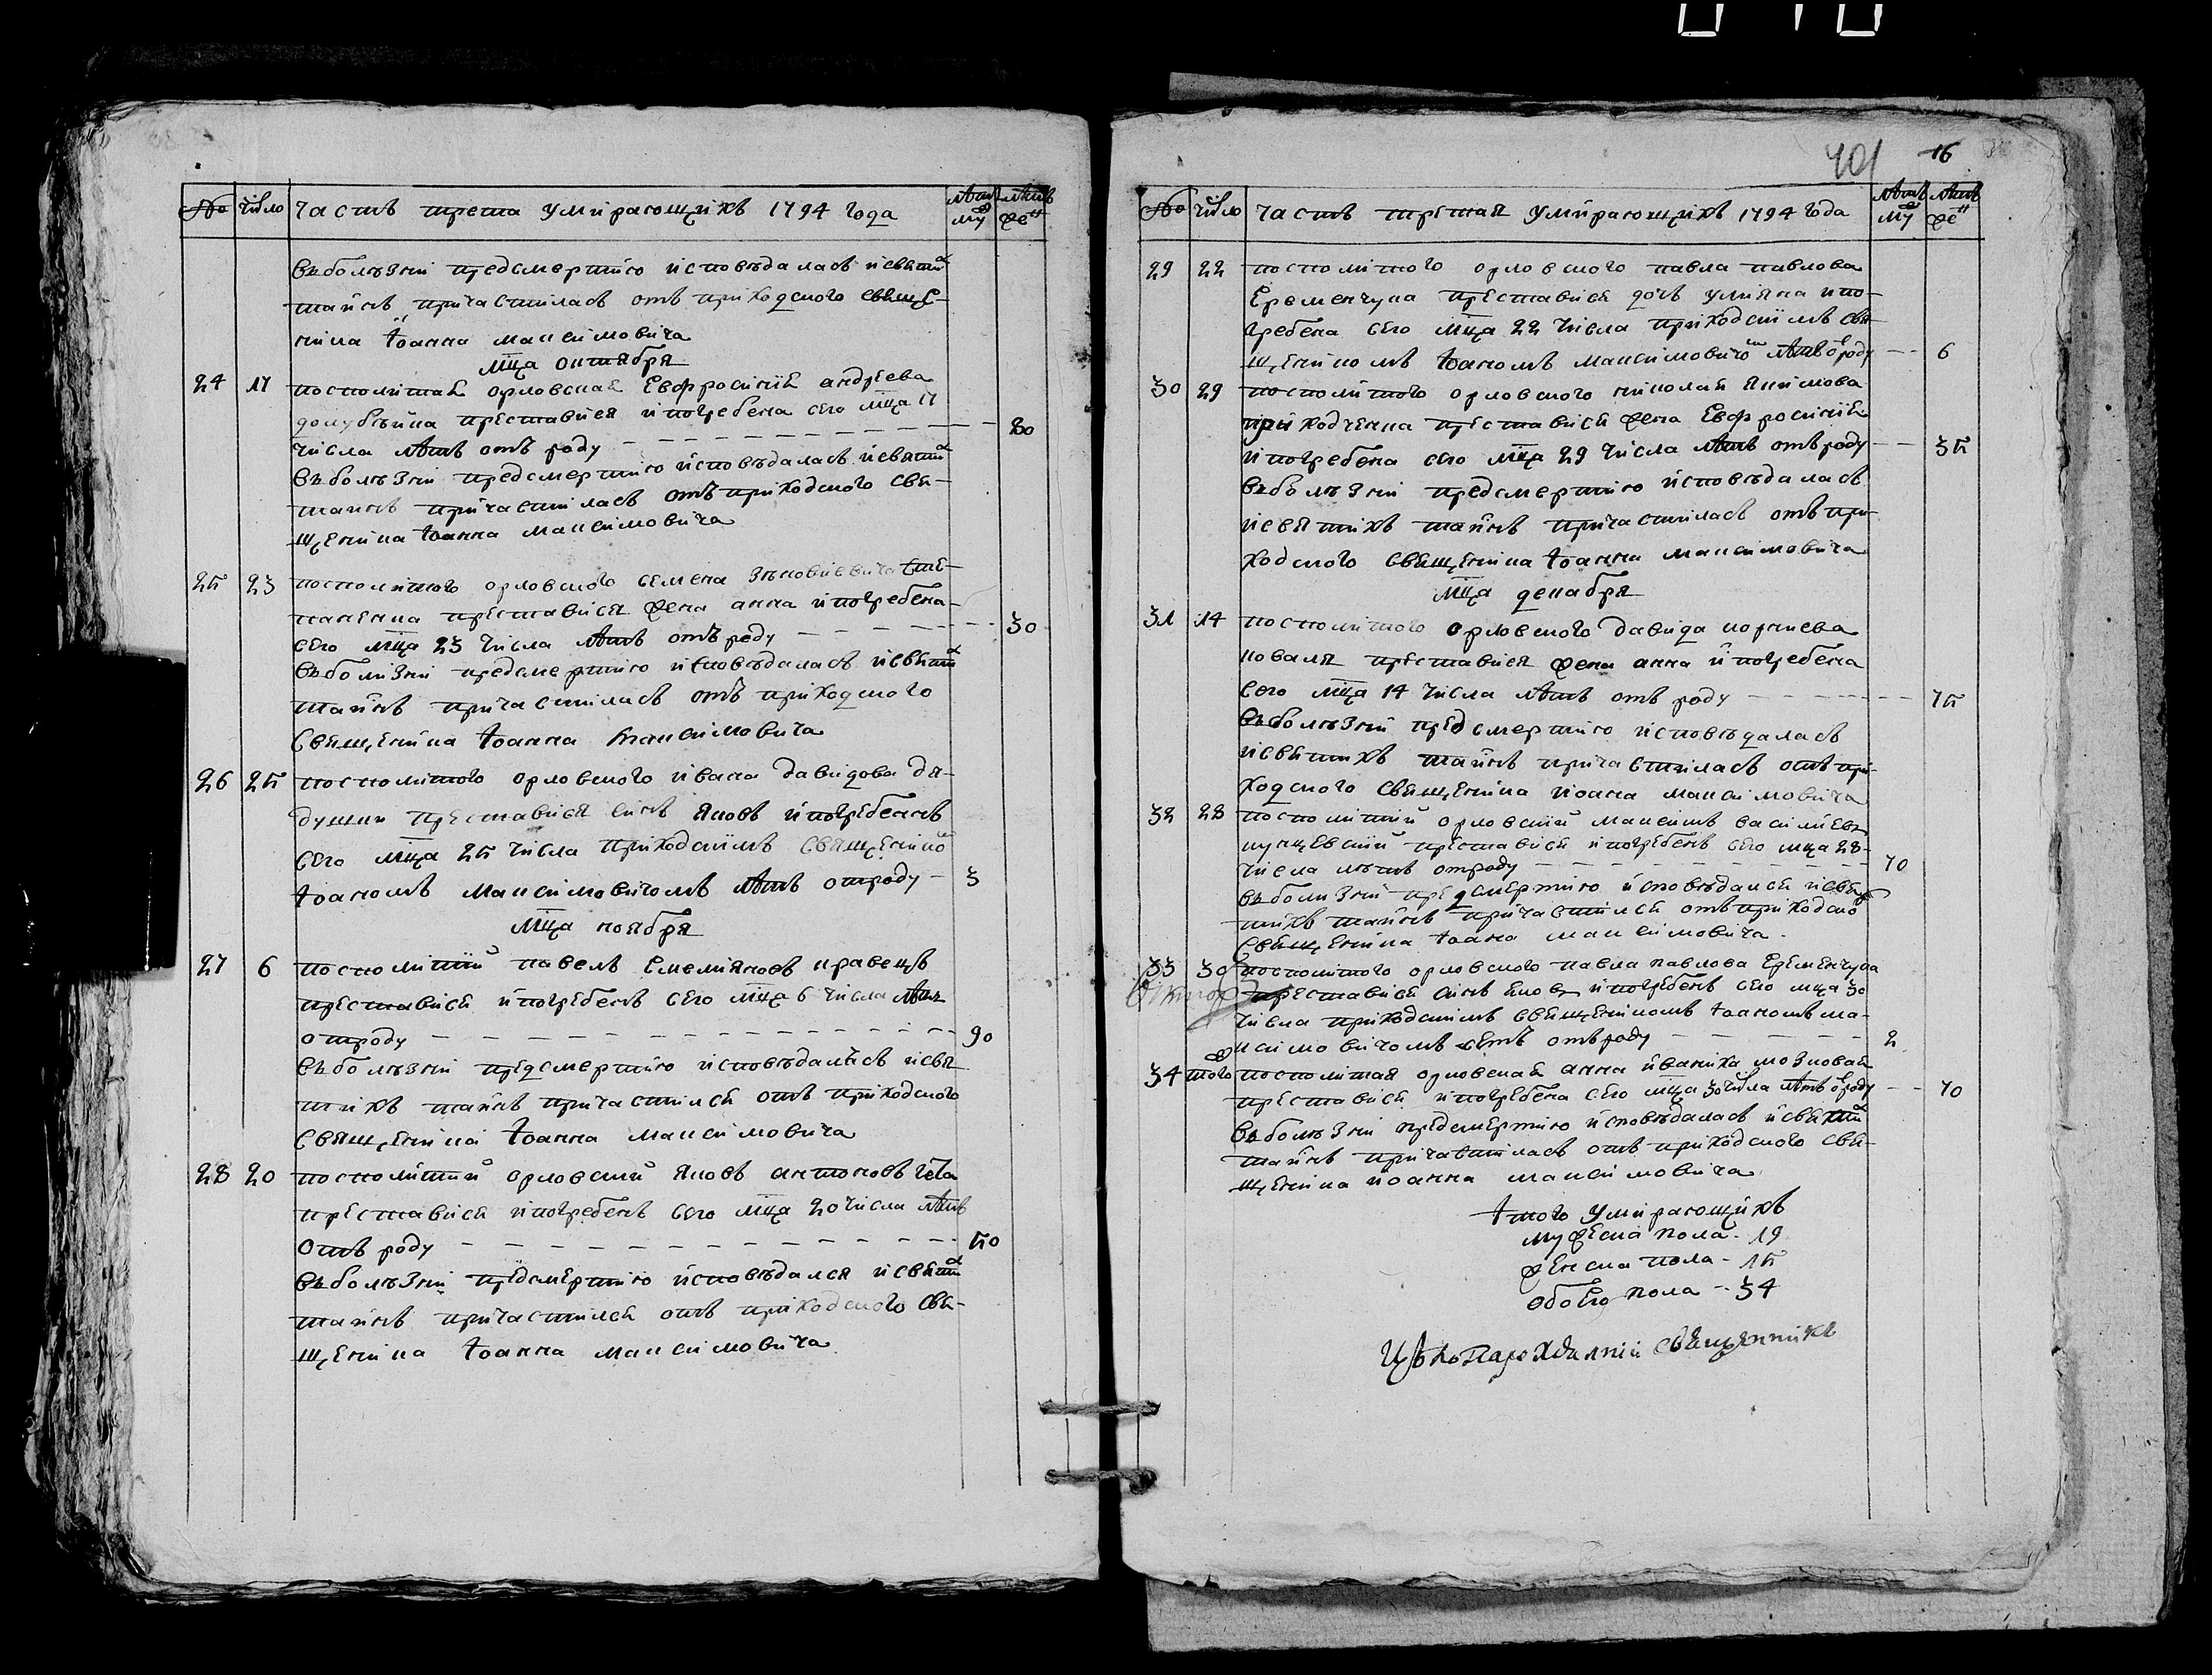 № число Часть трета умирающихъ 1794 года лѣтъ муж лѣтъ жен
въ болѣзни предсмертнію исповѣдалась и святих
тайнъ причастилась отъ приходского свяще-
ника Іоанна максимовича
мца октября
24 17 посполитая орловская Евфросинія андреева
голубтйна преставися и погребена сего мца 17
числа лѣтъ отъ роду 80
въ болѣзни предсмертнію исповѣдалась и святих
тайнъ причастилась отъ приходского свя-
щеника Іоанна максимовича
25 23 посполитого орловского семена зѣновіевича сте-
паненка преставися жена анна и погребена
сего мца 23 числа лѣтъ отъ роду 30
въ болизни предсмертнію исповѣдалась и святих
тайнъ причастилась отъ приходского
священика Іоанна максимовича
26 25 посполитого орловского ивана давидова дя-
душки преставися синъ яковъ и погребенъ
сего мца 25 числа приходскимъ священико
Іоаномъ максимовичомъ лѣтъ отроду 3
мца ноября
27 6 посполитий павелъ емелияновъ кравецъ
преставися и погребенъ сего мца 6 числа лѣтъ
отроду 90
въ болѣзни предсмертнію исповѣдалъсь и свя
тихъ тайнъ причастился отъ приходского
священика Іоанна максимовича
28 20 посполитий орловский яковъ антоновъ
преставися и погребенъ сего мца 20 числа лѣтъ
отъ роду 50
въ болѣзни предсмертнію исповѣдался и святих
тайнъ причастился отъ приходского свя-
щеника Іоанна максимовича
401 16
№ число Часть третая умирающихъ 1794 года лѣтъ муж лѣтъ жен
29 22 посполитого орловского павла павлова
Еременчука преставися дочь умияна и по-
гребена сего мца 22 числа приходскимъ свя-
щеникомъ Іоаномъ максимовичом лѣтъ от роду 6
30 29 посполитого орловского николая якимова
приходченка преставися жена Евфросинія
и погребена сего мца 29 числа лѣтъ отъ роду 35
въ болѣзни предсмертнію исповѣдалась
и святихъ тайнъ причастилась отъ при-
ходского священика Іоанна максимовича
мца декабря
31 14 посполитого орловского давида корнѣева
коваля преставися жена анна и погребена
сего мца 14 числа лѣтъ отъ роду 75
въ болѣзни предсмертнію исповѣдалась
и святихъ тайнъ причастилась отъ при-
ходского священика иоана максимовича
32 28 посполитий орловский максимъ василиевъ
преставися и погребенъ сего мца 28-
числа лѣтъ отроду 70
въ болизни предсмертнію исповѣдался и свя
тихъ тайнъ причастился отъ приходско
священика Іоана максимовича
33 30 посполитого орловского павла павлова Еременчука
преставися синъ яковъ и погребенъ сего мца 30
числа приходскимъ священикомъ Іоаномъ ма-
ксимовичомъ лѣтъ отъ роду 2
34 того ж посполитая орловская анна
преставися и погребена сего мца 30 числа лѣтъ от роду 70
въ болѣзни предсмертнію исповѣдалась и святих
тайнъ причастилась отъ приходского свя-
щеника иоанна максимовича
Ітого умирающихъ
мужеска пола - 19
женска пола - 15
обоего пола - 34
священникъ